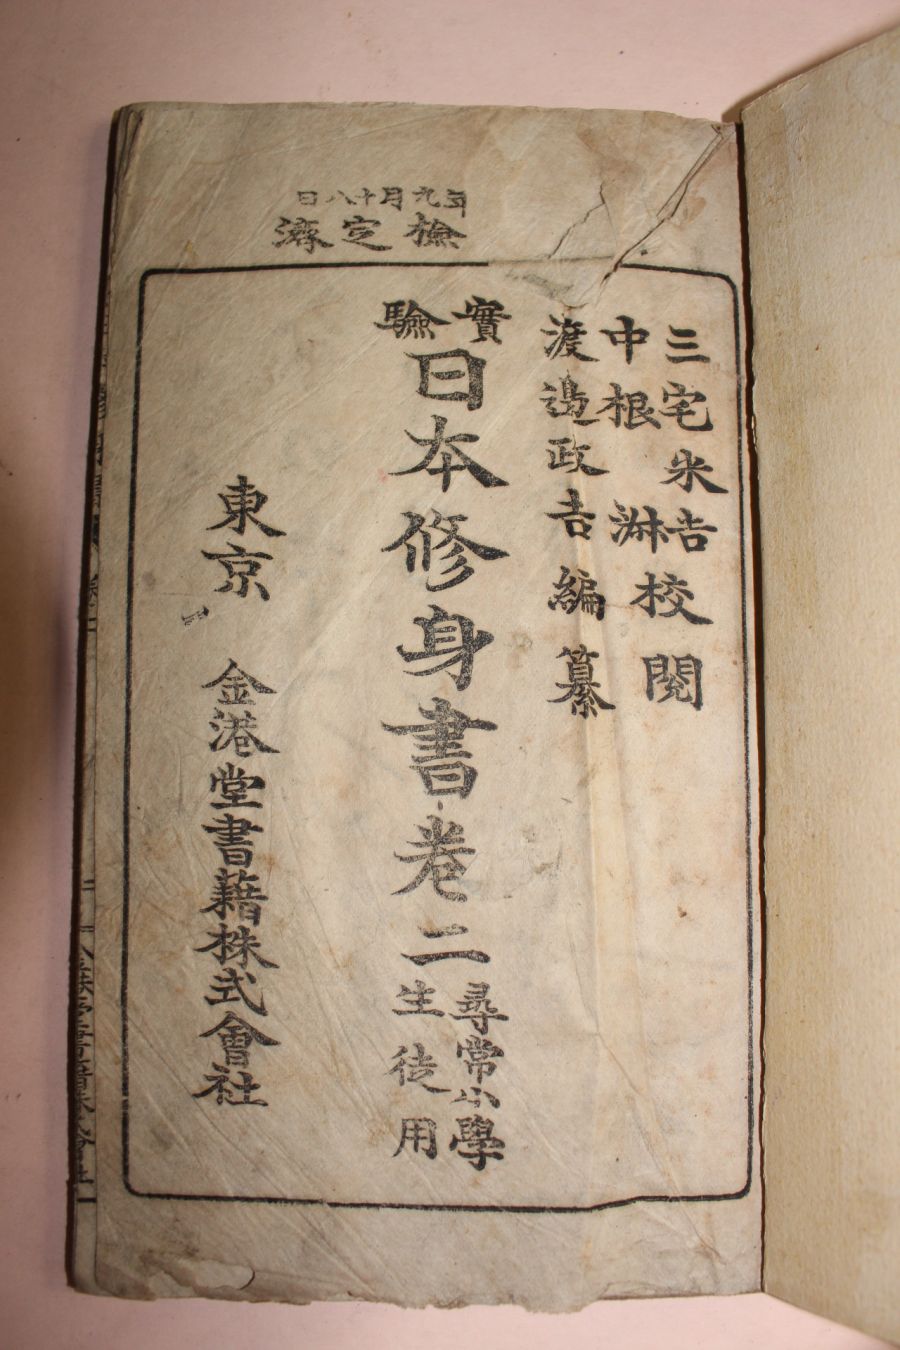 日八十月九年
濟定檢
三宅米吉
中根淑
校閲
渡邊政吉編纂
實驗
日本修身書卷二
尋常小學
生徒用
東京
金港堂書籍株式會社